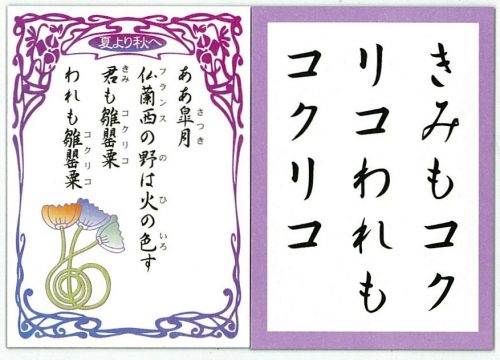 夏より秋へ
ああ皐月
さつき
仏蘭西の野は火の色す
フランス の ひ いろ
君も雛罌粟
きみ コクリコ
われも雛罌粟
コクリコ
きみもコク
リコわれも
コクリコ